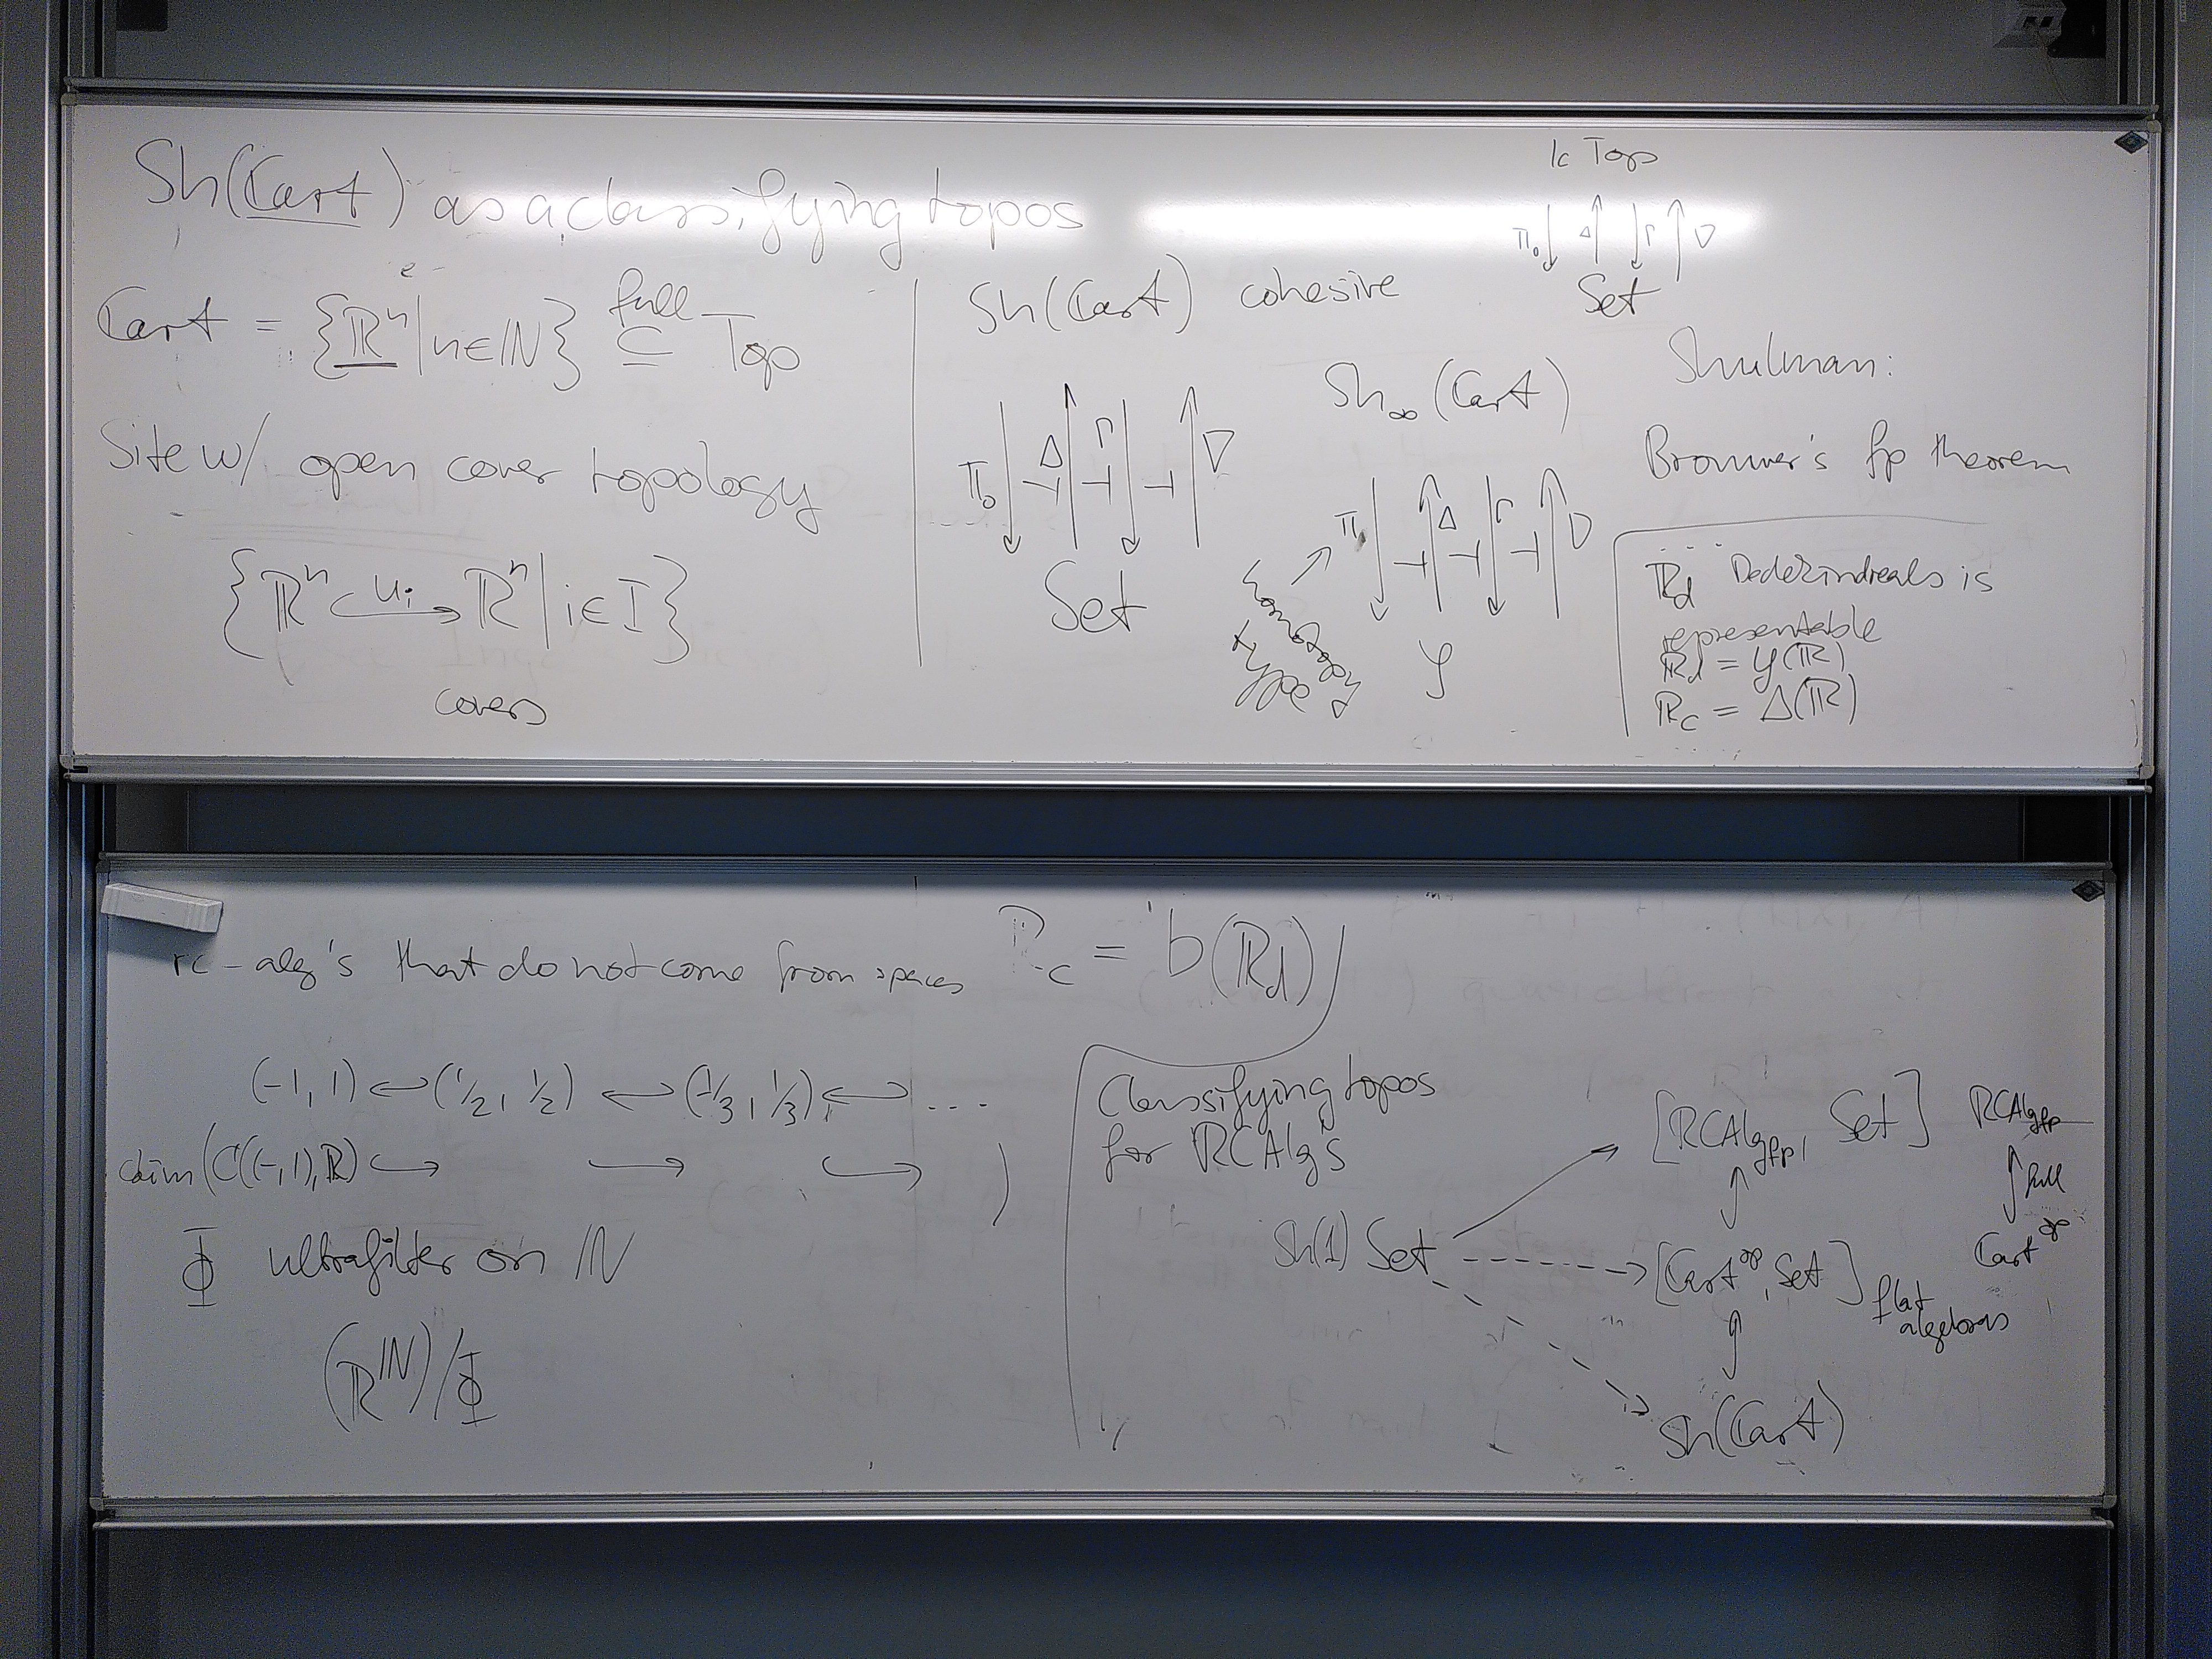 Sh(Cart) as a classifying topos
Cart = {ℝⁿ | n∈ℕ} ⊆ Top
full
Site w/ open cover topology
{ℝⁿ ↪ ℝⁿ | i∈I}
uᵢ
covers
Sh(Cart) cohesive
π₀ ↓ ⊣ Δ ↑ ⊣ Γ ↓ ⊣ ∇ ↑
Set
k Top
π₀ ↓ Δ ↑ Γ ↓ ∇ ↑
Set
Sh∞(Cart)
π ↓ ⊣ Δ ↑ ⊣ Γ ↓ ⊣ ∇ ↑
𝒮
homotopy
type
Shulman:
Brouwer's fp theorem
ℝd Dedekindreals is
representable
ℝd = y(ℝ)
ℝc = Δ(ℝ)
rc-alg's that do not come from spaces
ℝc = b(ℝd)
(-1, 1) ↩ (1/2, 1/2) ↩ (-1/3, 1/3) ↩ ...
(C((-,1),ℝ) ↪ ↪ ↪ )
Φ ultrafilter on ℕ
(ℝ^ℕ)/Φ
Classifying topos
for RCAlg's
Sh(1) Set
[RCAlg_fp, Set]
[Cart^op, Set] flat
algebras
Sh(Cart)
RCAlg_fp
↑ full
Cart^op